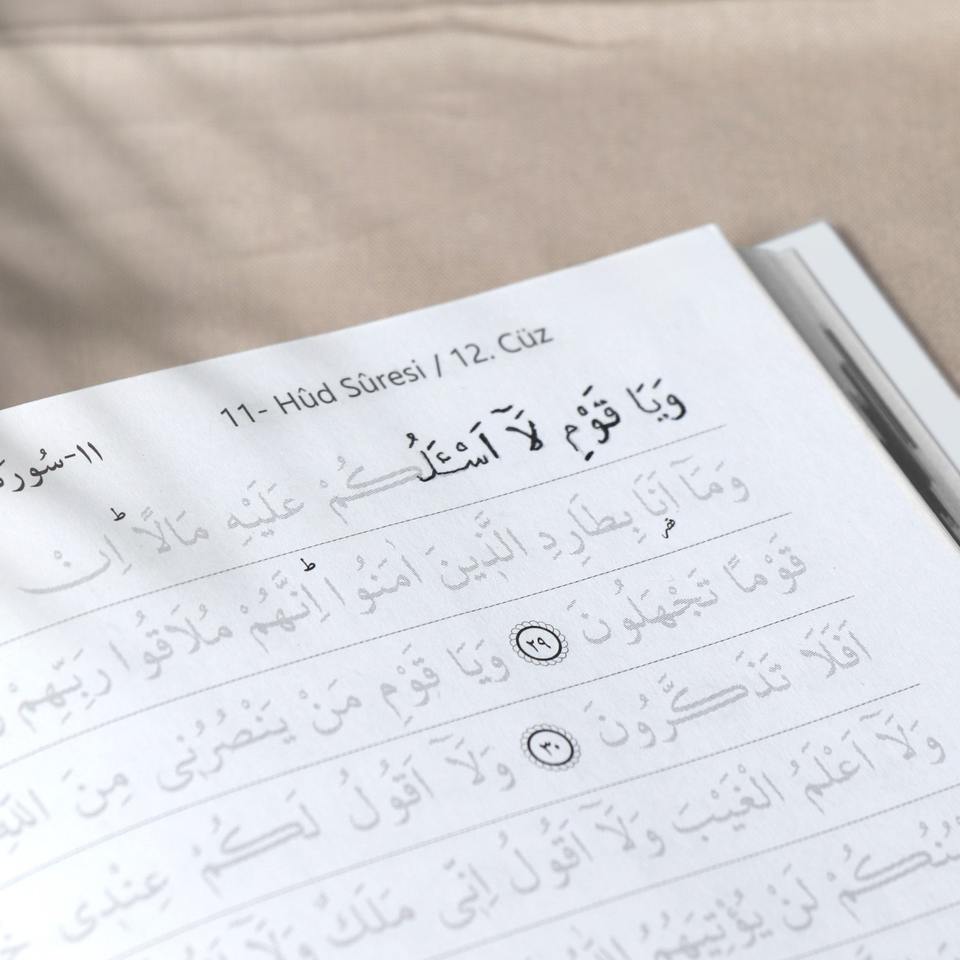 11- Hûd Sûresi / 12. Cüz
١١-سُورَة
وَيَا قَوْمِ لَآ اَسْـَٔلُكُمْ عَلَيْهِ مَالًاۜ اِنْ
وَمَٓا اَنَا۬ بِطَارِدِ الَّذٖينَ اٰمَنُواۜ اِنَّهُمْ مُلَاقُوا رَبِّهِمْ
قَوْمًا تَجْهَلُونَ ﴿٢٩﴾ وَيَا قَوْمِ مَنْ يَنْصُرُنٖى مِنَ اللّٰهِ
اَفَلَا تَذَكَّرُونَ ﴿٣٠﴾ وَلَٓا اَقُولُ لَكُمْ عِنْدٖى
وَلَٓا اَعْلَمُ الْغَيْبَ وَلَٓا اَقُولُ اِنّٖى مَلَكٌ وَلَٓا
لَنْ يُؤْتِيَهُمُ